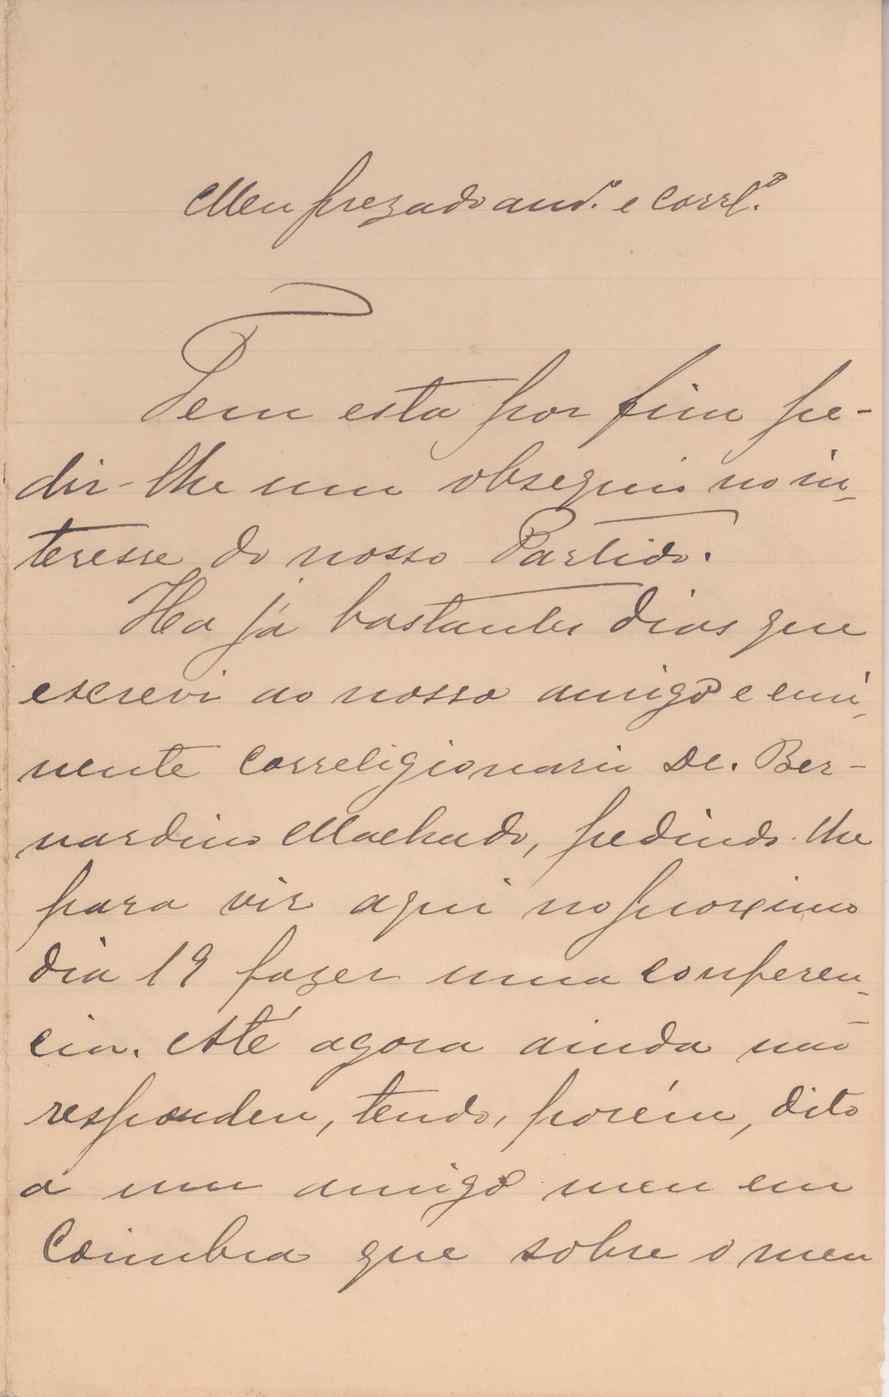 Meu prezado am.º e corrl.º
Tem esta por fim pe-
dir-lhe um obsequio no in-
teresse do nosso Partido.
Ha já bastantes dias que
escrevi ao nosso amigo e emi-
nente correligionario Dr. Ber-
nardino Machado, pedindo-lhe
para vir aqui no proximo
dia 19 fazer uma conferen-
cia. Até agora ainda não
respondeu, tendo, porém, dito
a um amigo meu em
Coimbra que sobre o meu